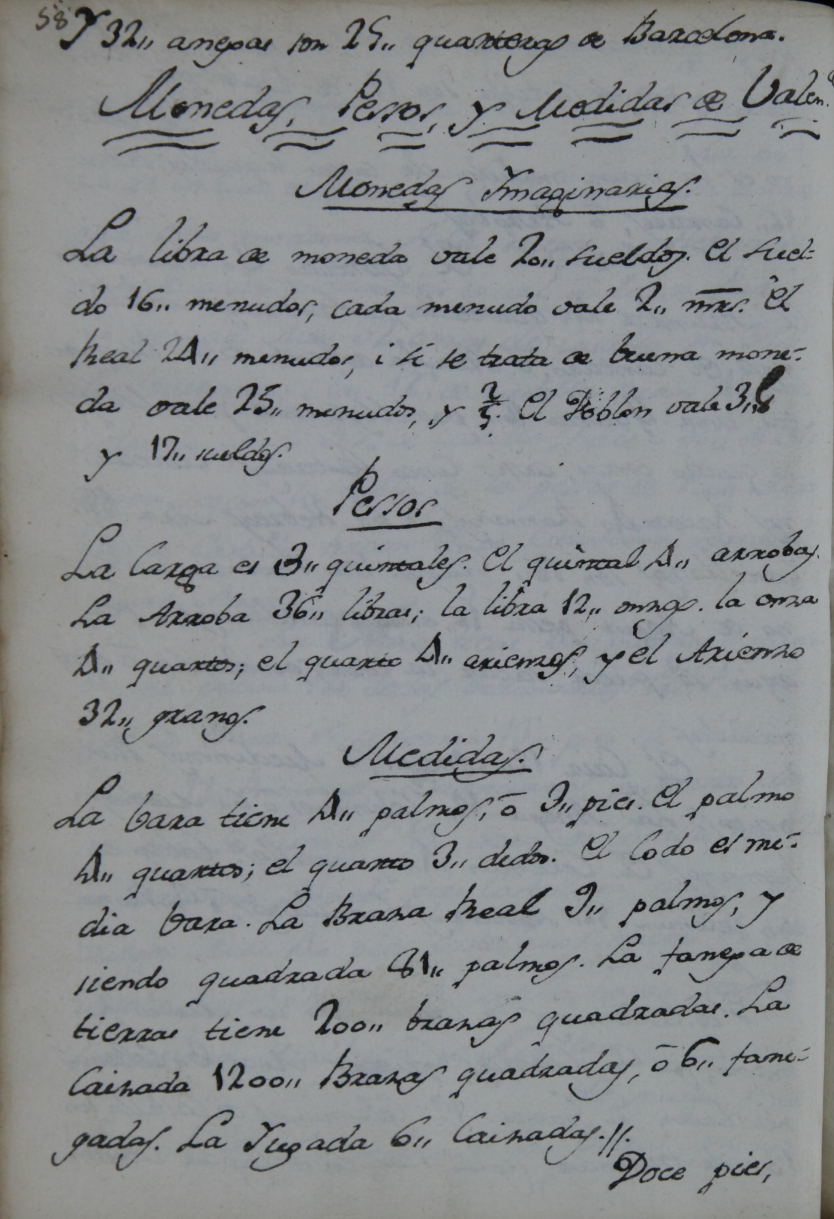 58
Y 32,, anegas son 25,, quarteras de Barcelona.
Monedas, Pessos, y Medidas de Valen.ª
Monedas Ymaginarias.
La libra de moneda vale 20,, sueldos. El suel-
do 16,, menudos; cada menudo vale 2,, mrs. El
Real 24,, menudos, i si se trata de buena mone-
da vale 25,, menudos, y 2/5. El Doblon vale 3,, £
y 17,, sueldos.
Pessos
La Carga es 3,, quintales. El quintal 4,, arrobas.
La Arroba 36,, libras; la libra 12,, onzas. la onza
4,, quartos; el quarto 4,, arienzos, y el Arienzo
32,, granos.
Medidas.
La bara tiene 4,, palmos, ó 3,, pies. El palmo
4,, quartos; el quarto 3,, dedos. El Codo es me-
dia bara. La Braza Real 9,, palmos, y
siendo quadrada 81,, palmos. La fanega de
tierras tiene 200,, brazas quadradas. La
Caizada 1200,, Brazas quadradas, ó 6,, fane-
gadas. La Jugada 6,, Caizadas.//.
Doce pies,